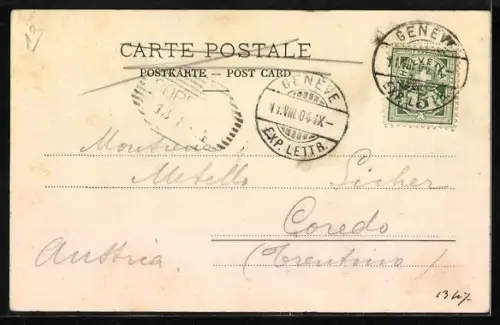 CARTE POSTALE
POSTKARTE — POST CARD
GENÈVE
11.VIII.04.IX–
EXP. LETTR.
GENÈVE
5
Metello Sicher
Coredo
Austria. (Trentino)
1347